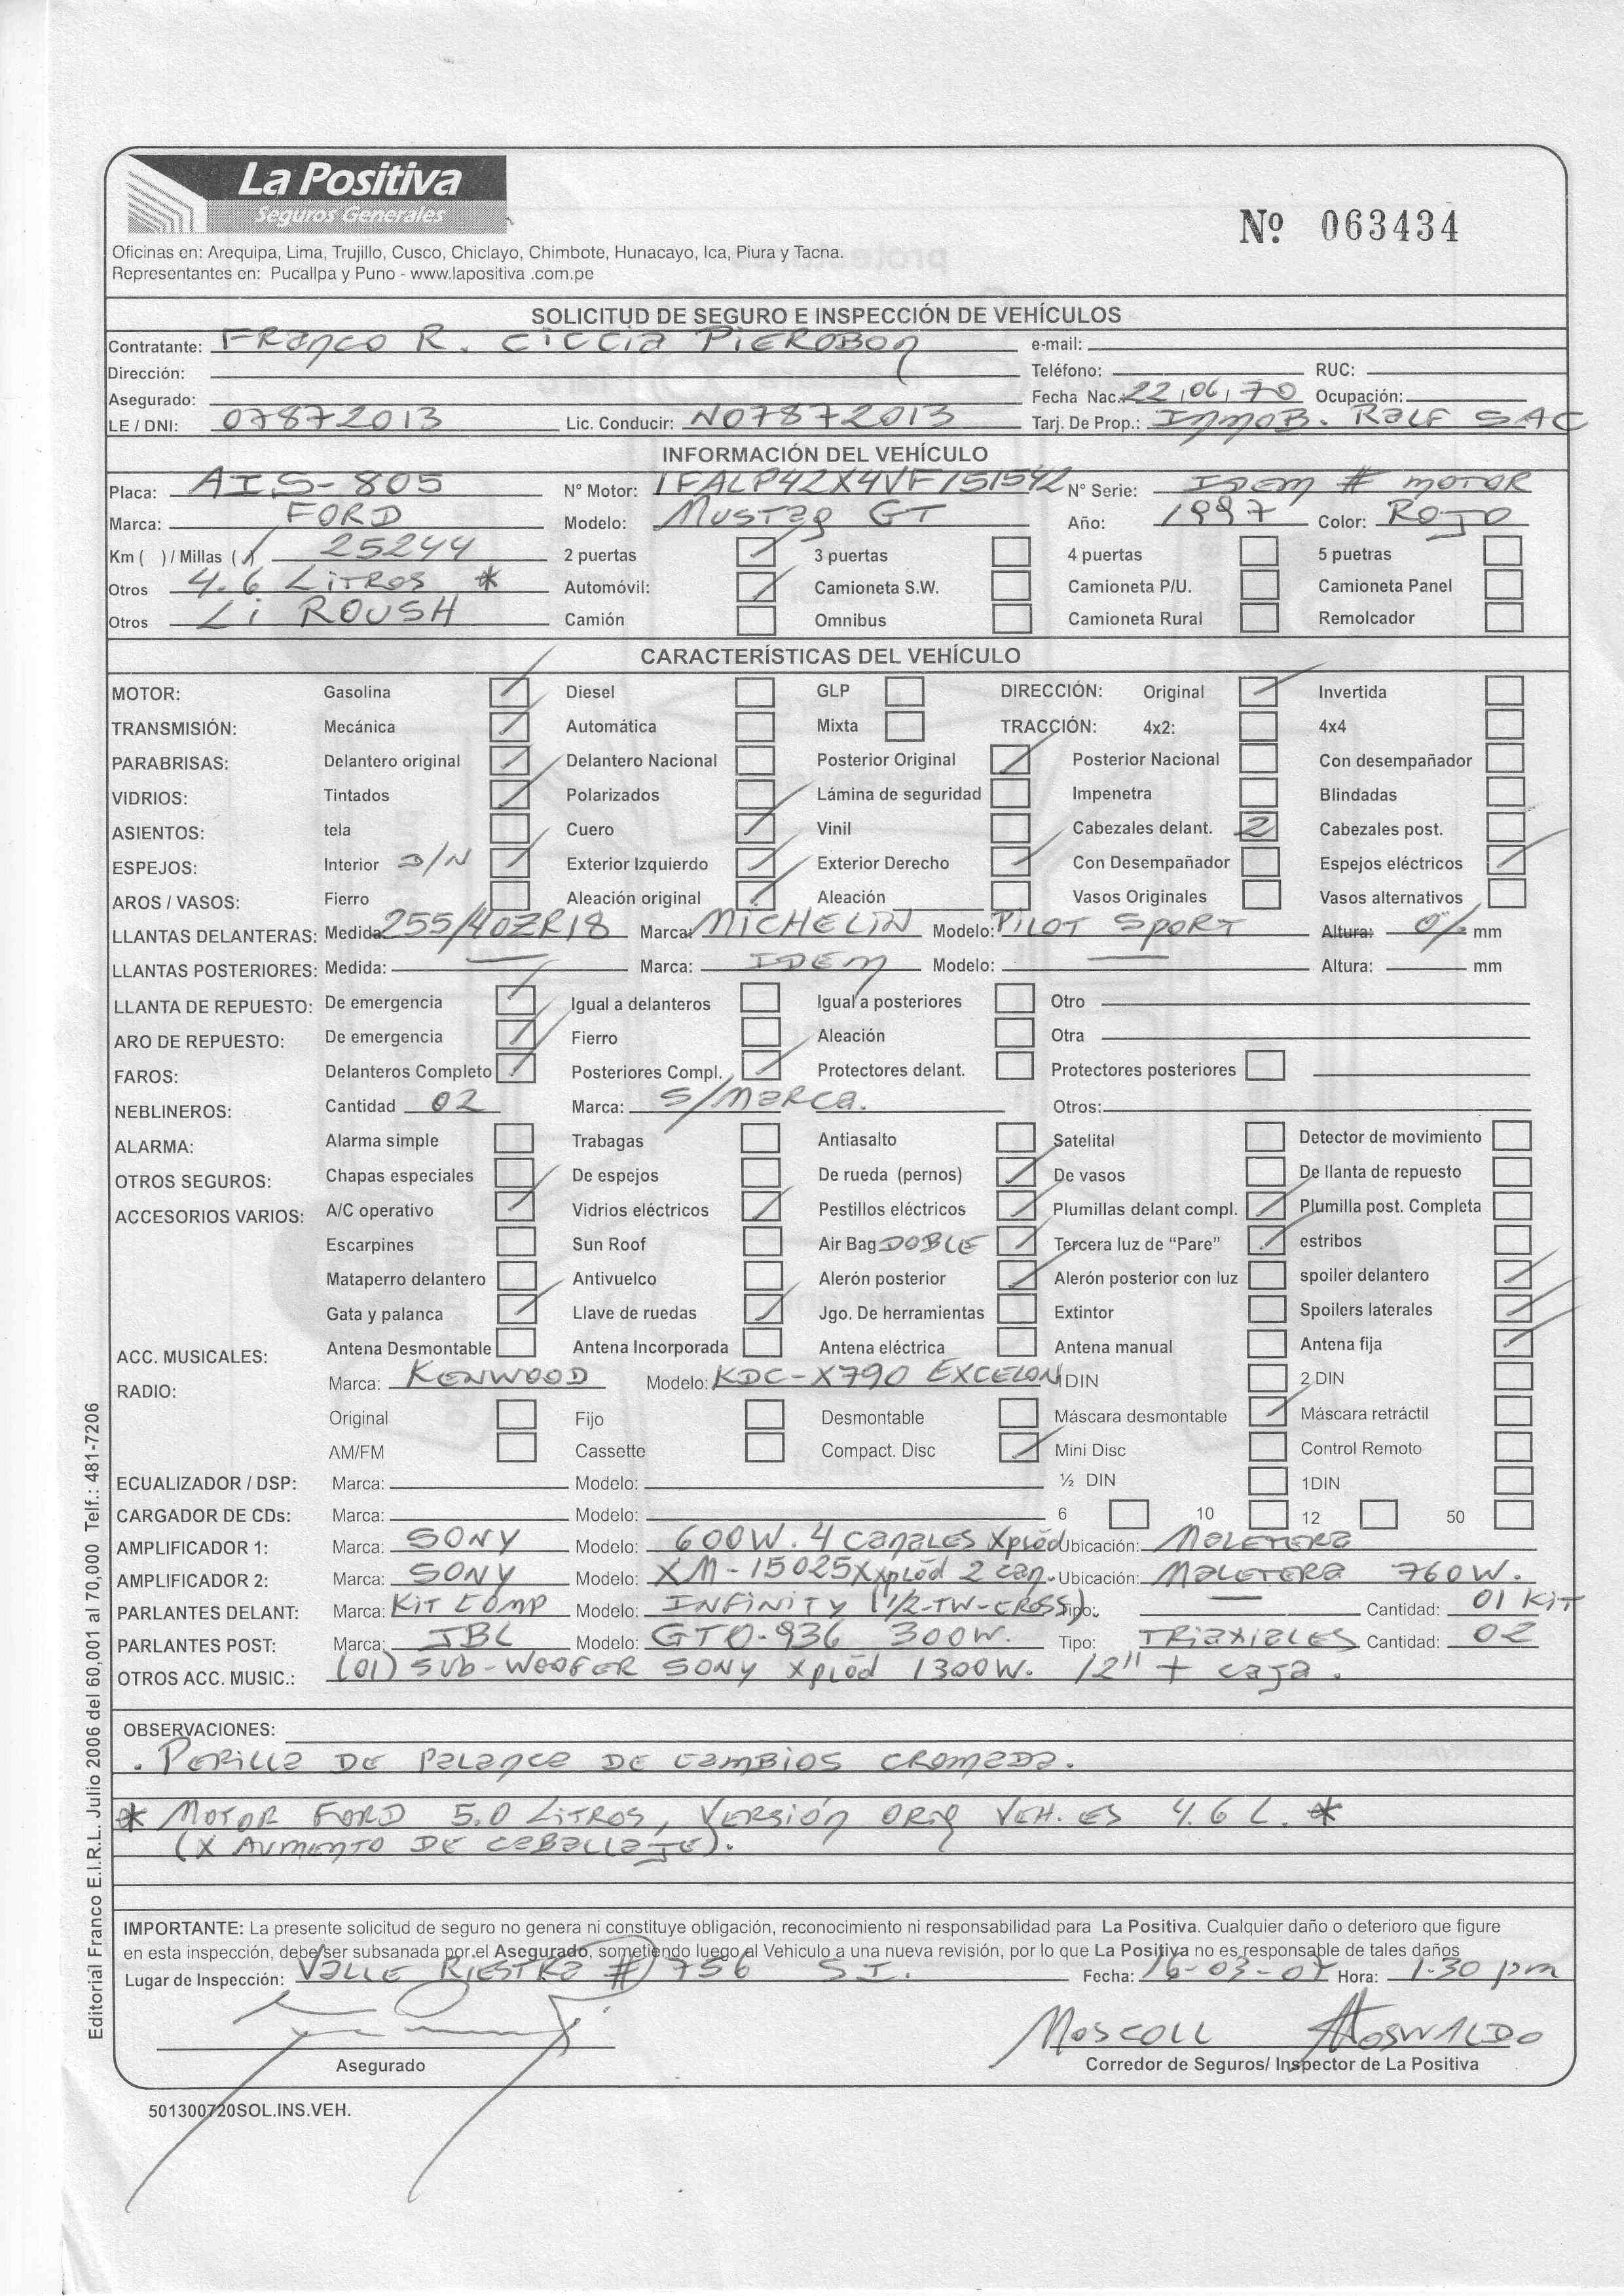 La Positiva
Seguros Generales
Nº 063434
Oficinas en: Arequipa, Lima, Trujillo, Cusco, Chiclayo, Chimbote, Hunacayo, Ica, Piura y Tacna.
Representantes en: Pucallpa y Puno - www.lapositiva .com.pe
SOLICITUD DE SEGURO E INSPECCIÓN DE VEHÍCULOS
Contratante: Franco R. Ciccia Pierobon e-mail:
Dirección: Teléfono: RUC:
Asegurado: Fecha Nac.: 22/06/70 Ocupación:
LE / DNI: 07872013 Lic. Conducir: N07872013 Tarj. De Prop.: INMOB. RALF SAC
INFORMACIÓN DEL VEHÍCULO
Placa: AIS-805 N° Motor: 1FALP42X4VF151542 N° Serie: IDEM # MOTOR
Marca: FORD Modelo: Mustag GT Año: 1997 Color: ROJO
Km ( ) / Millas (/) 25244 2 puertas 3 puertas 4 puertas 5 puetras
Otros 4.6 LITROS * Automóvil: Camioneta S.W. Camioneta P/U. Camioneta Panel
Otros ROUSH Camión Omnibus Camioneta Rural Remolcador
CARACTERÍSTICAS DEL VEHÍCULO
MOTOR: Gasolina Diesel GLP DIRECCIÓN: Original Invertida
TRANSMISIÓN: Mecánica Automática Mixta TRACCIÓN: 4x2: 4x4
PARABRISAS: Delantero original Delantero Nacional Posterior Original Posterior Nacional Con desempañador
VIDRIOS: Tintados Polarizados Lámina de seguridad Impenetra Blindadas
ASIENTOS: tela Cuero Vinil Cabezales delant. 2 Cabezales post.
ESPEJOS: Interior D/N Exterior Izquierdo Exterior Derecho Con Desempañador Espejos eléctricos
AROS / VASOS: Fierro Aleación original Aleación Vasos Originales Vasos alternativos
LLANTAS DELANTERAS: Medida: 255/40ZR18 Marca: MICHELIN Modelo: PILOT SPORT Altura: mm
LLANTAS POSTERIORES: Medida: — Marca: IDEM Modelo: — Altura: mm
LLANTA DE REPUESTO: De emergencia Igual a delanteros Igual a posteriores Otro
ARO DE REPUESTO: De emergencia Fierro Aleación Otra
FAROS: Delanteros Completo Posteriores Compl. Protectores delant. Protectores posteriores
NEBLINEROS: Cantidad 02 Marca: S/MARCA. Otros:
ALARMA: Alarma simple Trabagas Antiasalto Satelital Detector de movimiento
OTROS SEGUROS: Chapas especiales De espejos De rueda (pernos) De vasos De llanta de repuesto
ACCESORIOS VARIOS: A/C operativo Vidrios eléctricos Pestillos eléctricos Plumillas delant compl. Plumilla post. Completa
Escarpines Sun Roof Air Bag DOBLE Tercera luz de "Pare" estribos
Mataperro delantero Antivuelco Alerón posterior Alerón posterior con luz spoiler delantero
Gata y palanca Llave de ruedas Jgo. De herramientas Extintor Spoilers laterales
ACC. MUSICALES: Antena Desmontable Antena Incorporada Antena eléctrica Antena manual Antena fija
RADIO: Marca: KENWOOD Modelo: KDC-X790 EXCELON 1DIN 2 DIN
Original Fijo Desmontable Máscara desmontable Máscara retráctil
AM/FM Cassette Compact. Disc Mini Disc Control Remoto
ECUALIZADOR / DSP: Marca: Modelo: ½ DIN 1DIN
CARGADOR DE CDs: Marca: Modelo: 6 10 12 50
AMPLIFICADOR 1: Marca: SONY Modelo: 600W. 4 CANALES Xplōd Ubicación: MALETERA
AMPLIFICADOR 2: Marca: SONY Modelo: XM-15025X Xplōd 2 can. Ubicación: MALETERA 760W.
PARLANTES DELANT: Marca: KIT COMP Modelo: INFINITY (1/2-TW-CROSS). Tipo: — Cantidad: 01 KIT
PARLANTES POST: Marca: JBL Modelo: GTO-936 300W. Tipo: TRIAXIALES Cantidad: 02
OTROS ACC. MUSIC.: (01) SUB-WOOFER SONY Xplōd 1300W. 12" + CAJA.
OBSERVACIONES:
. PERILLA DE PALANCA DE CAMBIOS CROMADA.
* MOTOR FORD 5.0 LITROS, VERSIÓN ORIG VEH. ES 4.6 L. *
(X AUMENTO DE CABALLAJE).
IMPORTANTE: La presente solicitud de seguro no genera ni constituye obligación, reconocimiento ni responsabilidad para La Positiva. Cualquier daño o deterioro que figure
en esta inspección, debe ser subsanada por el Asegurado, sometiendo luego al Vehiculo a una nueva revisión, por lo que La Positiva no es responsable de tales daños
Lugar de Inspección: VALLE RIESTRA # 756 S.I. Fecha: 16-03-07 Hora: 1:30 pm
MOSCOLL OSWALDO
Asegurado Corredor de Seguros/ Inspector de La Positiva
501300720SOL.INS.VEH.
Editorial Franco E.I.R.L. Julio 2006 del 60,001 al 70,000 Telf.: 481-7206